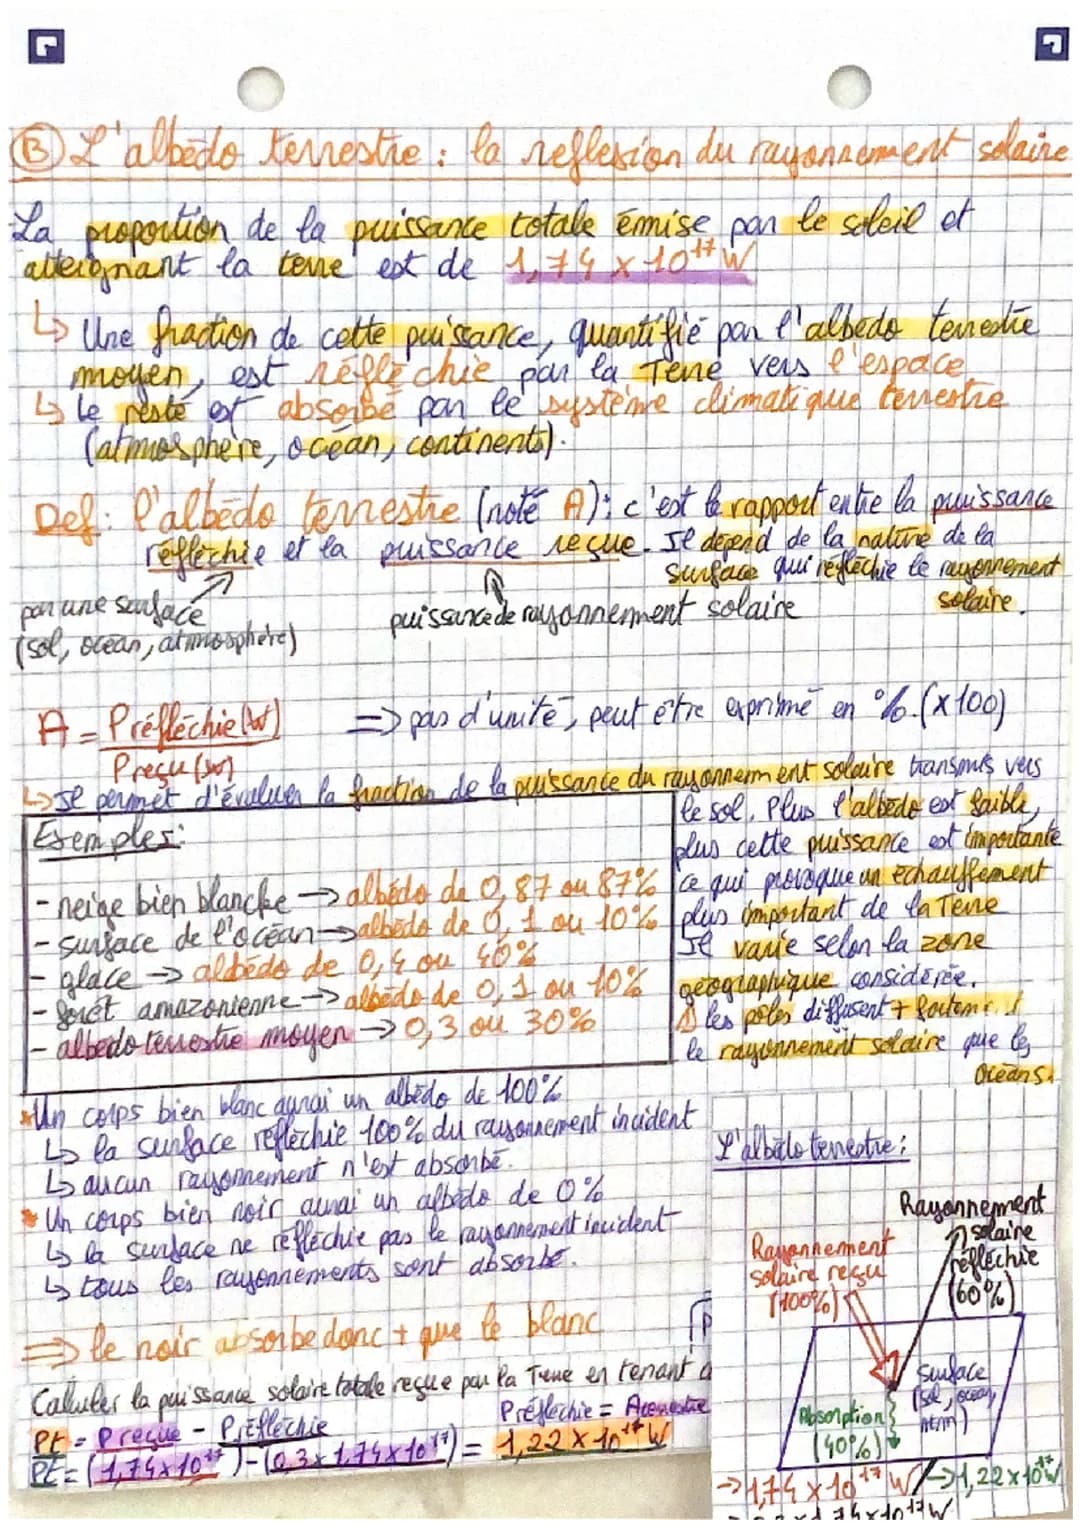 B L'albédo terrestre : la reflexion du rayonnement solaire
La proportion de la puissance totale émise par le soleil et
atteignant la terre est de 1,74 x 10¹⁷ W
↳ Une fraction de cette puissance, quantifié par l'albédo terrestre
moyen, est réfléchie par la Terre vers l'espace
↳ le reste est absorbé par le système climatique terrestre
(atmosphère, océan, continents).
Def: l'albédo terrestre (noté A): c'est le rapport entre la puissance
réfléchie et la puissance reçue. Il dépend de la nature de la
surface qui réfléchie le rayonnement
solaire.
par une surface
(sol, océan, atmosphère)
puissance de rayonnement solaire
A = Préfléchie (W)
Preçu (W)
=> pas d'unité, peut être exprimé en %. (x100)
↳ Il permet d'évaluer la fraction de la puissance du rayonnement solaire transmis vers
le sol. Plus l'albédo est faible,
plus cette puissance est importante
ce qui provoque un échauffement
plus important de la Terre
Il varie selon la zone
géographique considérée.
⚠ les pôles diffusent + fortement
le rayonnement solaire que les
océans.
Exemples:
- neige bien blanche → albédo de 0,87 ou 87%
- surface de l'océan → albédo de 0,1 ou 10%
- glace → albédo de 0,4 ou 40%
- forêt amazonienne → albédo de 0,1 ou 10%
- albedo terrestre moyen → 0,3 ou 30%
* Un corps bien blanc aurai un albédo de 100%
↳ la surface réfléchie 100% du rayonnement incident
↳ aucun rayonnement n'est absorbé.
* Un corps bien noir aurai un albédo de 0%
↳ la surface ne réfléchie pas le rayonnement incident
↳ tous les rayonnements sont absorbé.
=> le noir absorbe donc + que le blanc
Calculer la puissance solaire totale reçue par la Terre en tenant
Pt = Preçue - Préfléchie
Préfléchie = Aterrestre
Pt = (1,74x10¹⁷) - (0,3x1,74x10¹⁷) = 1,22 x 10¹⁷ W
L'albédo terrestre :
Rayonnement
solaire reçu
(100%)
Rayonnement
solaire
réfléchie
(60%)
Surface
(sol, océan,
atm)
Absorption
(40%)
→ 1,74 x 10¹⁷ W
→ 1,22 x 10¹⁷ W